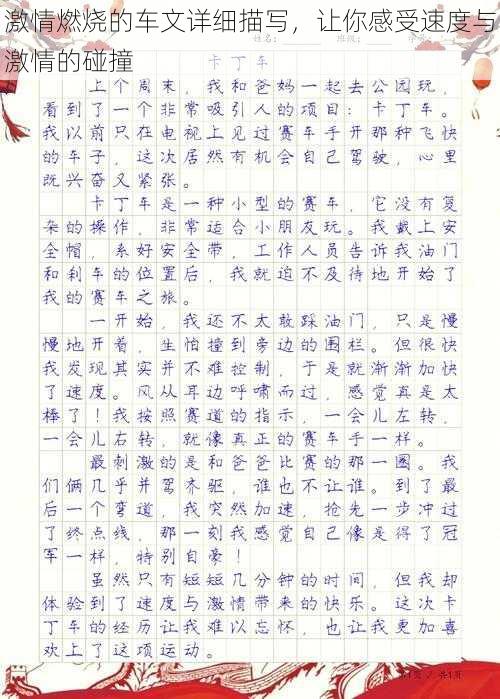 激情燃烧的车文详细描写，让你感受速度与
激情的碰撞
卡丁车
上个周末，我和爸妈一起去公园玩，
看到了一个非常吸引人的项目：卡丁车。
我以前只在电视上见过赛车手开那种飞快
的车子，这次居然有机会自己驾驶，心里
既兴奋又紧张。
卡丁车是一种小型的赛车，它没有复
杂的操作，非常适合小朋友玩。我戴上安
全帽，系好安全带，工作人员告诉我油门
和刹车的位置后，我就迫不及待地开始了
我的赛车之旅。
一开始，我还不太敢踩油门，只是慢
慢地开着，生怕撞到旁边的围栏。但很快
我发现其实并不难控制，于是就渐渐加快
了速度。风从耳边呼啸而过，感觉真是太
棒了！我按照赛道的指示，一会儿左转，
一会儿右转，就像真正的赛车手一样。
最刺激的是和爸爸比赛的那一圈。我
们俩几乎并驾齐驱，谁也不让谁。到了最
后一个弯道，我突然加速，抢先一步冲过
了终点线，那一刻我感觉自己像是得了冠
军一样，特别自豪！
虽然只有短短几分钟的时间，但我却
体验到了速度与激情带来的快乐。这次卡
丁车的经历让我难以忘怀，也让我更加喜
欢上了这项运动。
第1页 / 共1页